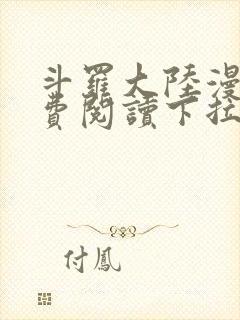 斗羅大陸漫
費閱讀下拉
付鳳